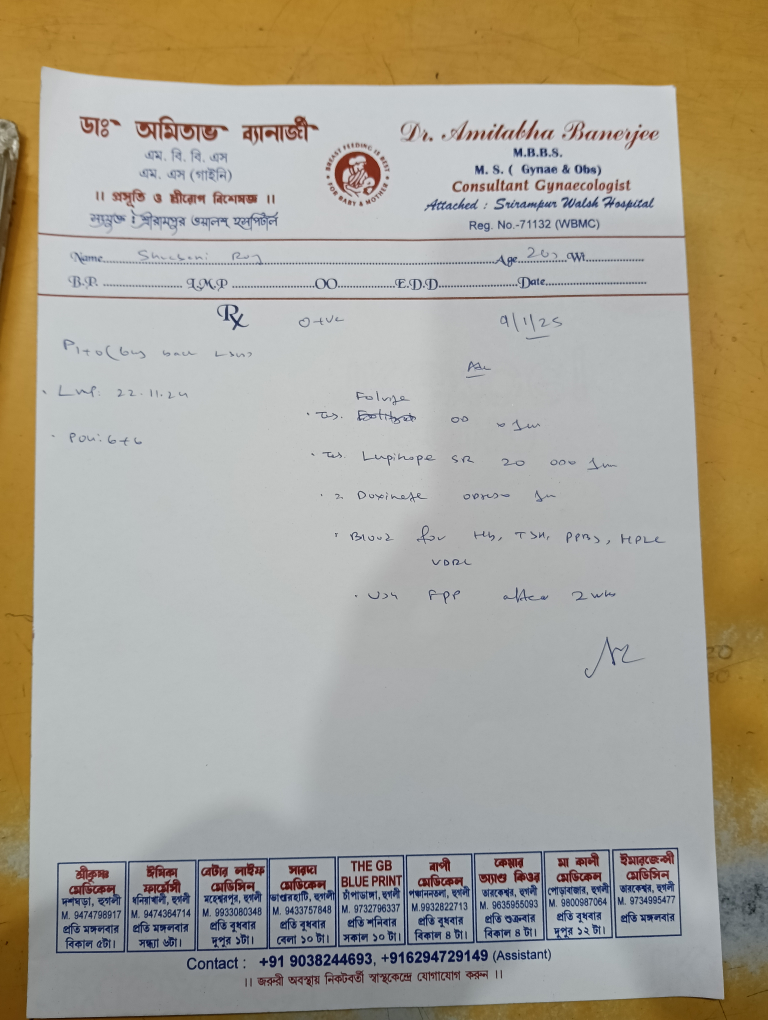 ডাঃ অমিতাভ ব্যানার্জী
এম. বি. বি. এস
এম. এস (গাইনি)
।। প্রসূতি ও স্ত্রীরোগ বিশেষজ্ঞ ।।
সংযুক্ত : শ্রীরামপুর ওয়ালশ হসপিটাল
BREAST FEEDING IS BEST
FOR BABY & MOTHER
Dr. Amitabha Banerjee
M.B.B.S.
M. S. ( Gynae & Obs)
Consultant Gynaecologist
Attached : Srirampur Walsh Hospital
Reg. No.-71132 (WBMC)
Name Roy Age 20 Wt.
B.P. L.M.P OO E.D.D Date
Rx O+ve 9/1/25
P1+0 (6
LMP. 22.11.24
POG: 6+6
Folvite
Tab. OO
Tab. SR 20
Doxinate
Blood for Hb, TSH, PPBS, HPLC
VDRL
USG FPP after 2 wks
শ্রীকৃষ্ণ মেডিকেল
দশঘড়া, হুগলী
M. 9474798917
প্রতি মঙ্গলবার
বিকাল ৫টা।
ঈমিকা ফার্মেসী
ধনিয়াখালী, হুগলী
M. 9474364714
প্রতি মঙ্গলবার
সন্ধ্যা ৬টা।
বেটার লাইফ মেডিসিন
মহেশ্বরপুর, হুগলী
M. 9933080348
প্রতি বুধবার
দুপুর ১টা।
সারদা মেডিকেল
ভাণ্ডারহাটি, হুগলী
M. 9433757848
প্রতি বুধবার
বেলা ১০ টা।
THE GB
BLUE PRINT
চাঁপাডাঙ্গা, হুগলী
M. 9732796337
প্রতি শনিবার
সকাল ১০ টা।
বাপী মেডিকেল
পঞ্চাননতলা, হুগলী
M.9932822713
প্রতি বুধবার
বিকাল ৪ টা।
কেয়ার অ্যাণ্ড কিওর
তারকেশ্বর, হুগলী
M. 9635955093
প্রতি শুক্রবার
বিকাল ৪ টা।
মা কালী মেডিকেল
পোড়াবাজার, হুগলী
M. 9800987064
প্রতি বুধবার
দুপুর ১২ টা।
ইমারজেন্সী মেডিসিন
তারকেশ্বর, হুগলী
M. 9734995477
প্রতি মঙ্গলবার
Contact : +91 9038244693, +916294729149 (Assistant)
।। জরুরী অবস্থায় নিকটবর্তী স্বাস্থকেন্দ্রে যোগাযোগ করুন ।।